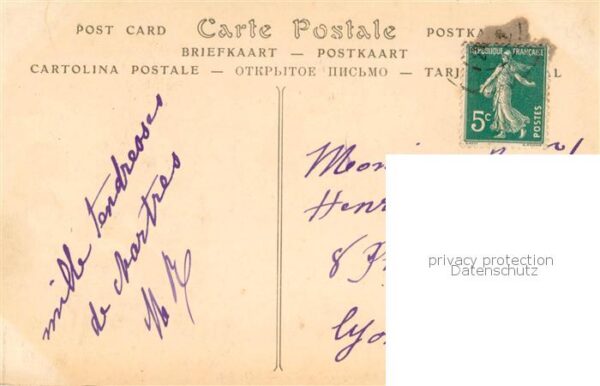 POST CARD Carte Postale POSTKA
BRIEFKAART — POSTKAART
CARTOLINA POSTALE — ОТКРЫТОЕ ПИСЬМО — TARJ AL
RÉPUBLIQUE FRANÇAISE
5c
POSTES
mille tendresses
de chartres
Henr
8
Lyo
privacy protection
Datenschutz